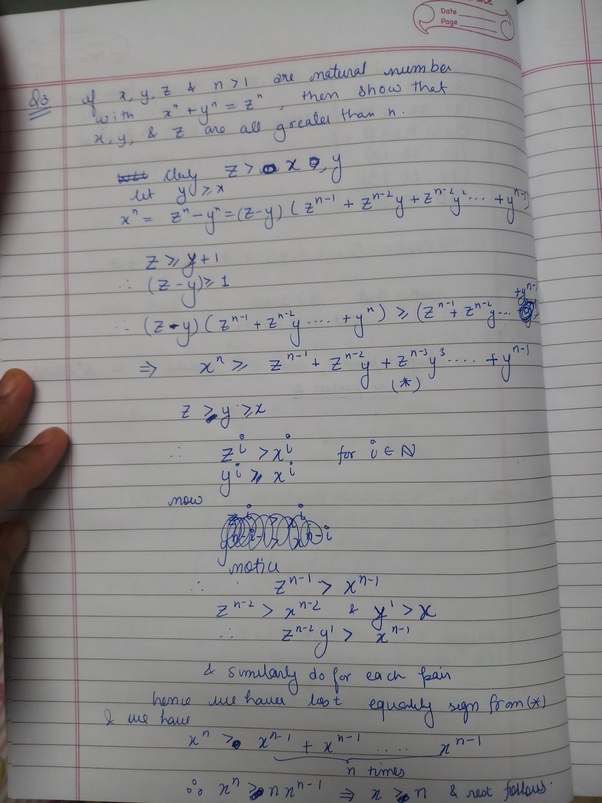 Date
Page
Q3 If x, y, z & n > 1 are natural number
with xⁿ + yⁿ = zⁿ, then show that
x, y, & z are all greater than n.
z > x , y
let y ≥ x
xⁿ = zⁿ - yⁿ = (z-y) ( zⁿ⁻¹ + zⁿ⁻² y + zⁿ⁻² y² ... + yⁿ⁻¹)
z ≥ y + 1
∴ (z - y) ≥ 1
∴ (z - y) ( zⁿ⁻¹ + zⁿ⁻² y .... + yⁿ ) ≥ (zⁿ⁻¹ + zⁿ⁻² y ... + yⁿ⁻¹)
⇒ xⁿ ≥ zⁿ⁻¹ + zⁿ⁻² y + zⁿ⁻³ y³ .... + yⁿ⁻¹
(*)
z > y ≥ x
∴ zⁱ > xⁱ for i ∈ N
yⁱ ≥ xⁱ
now
notice
∴ zⁿ⁻¹ > xⁿ⁻¹
zⁿ⁻² > xⁿ⁻² & y' > x
∴ zⁿ⁻² y' > xⁿ⁻¹
& similarly do for each pair
hence we have lost equality sign from (*)
& we have
xⁿ > xⁿ⁻¹ + xⁿ⁻¹ .... xⁿ⁻¹
n times
∴ xⁿ > n xⁿ⁻¹ ⇒ x > n & rest follows.